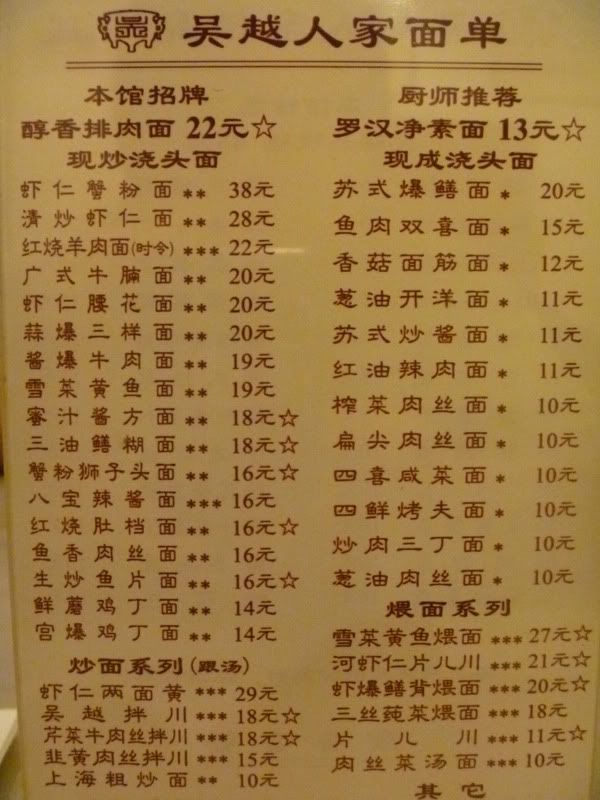 吴越人家面单
本馆招牌
醇香排肉面 22元☆
现炒浇头面
虾仁蟹粉面 ** 38元
清炒虾仁面 ** 28元
红烧羊肉面(时令) *** 22元
广式牛腩面 ** 20元
虾仁腰花面 ** 20元
蒜爆三样面 ** 20元
酱爆牛肉面 ** 19元
雪菜黄鱼面 ** 19元
蜜汁酱方面 ** 18元☆
三油鳝糊面 ** 18元☆
蟹粉狮子头面 ** 16元☆
八宝辣酱面 *** 16元
红烧肚档面 ** 16元☆
鱼香肉丝面 ** 16元
生炒鱼片面 ** 16元☆
鲜蘑鸡丁面 ** 14元
宫爆鸡丁面 ** 14元
炒面系列(跟汤)
虾仁两面黄 *** 29元
吴越拌川 *** 18元☆
芹菜牛肉丝拌川 *** 18元☆
韭黄肉丝拌川 *** 15元
上海粗炒面 ** 10元
厨师推荐
罗汉净素面 13元☆
现成浇头面
苏式爆鳝面 * 20元
鱼肉双喜面 * 15元
香菇面筋面 * 12元
葱油开洋面 * 11元
苏式炒酱面 * 11元
红油辣肉面 * 11元
榨菜肉丝面 * 10元
扁尖肉丝面 * 10元
四喜咸菜面 * 10元
四鲜烤夫面 * 10元
炒肉三丁面 * 10元
葱油肉丝面 * 10元
煨面系列
雪菜黄鱼煨面 *** 27元☆
河虾仁片儿川 *** 21元☆
虾爆鳝背煨面 *** 20元☆
三丝莼菜煨面 *** 18元
片儿川 *** 11元☆
肉丝菜汤面 *** 10元
其它